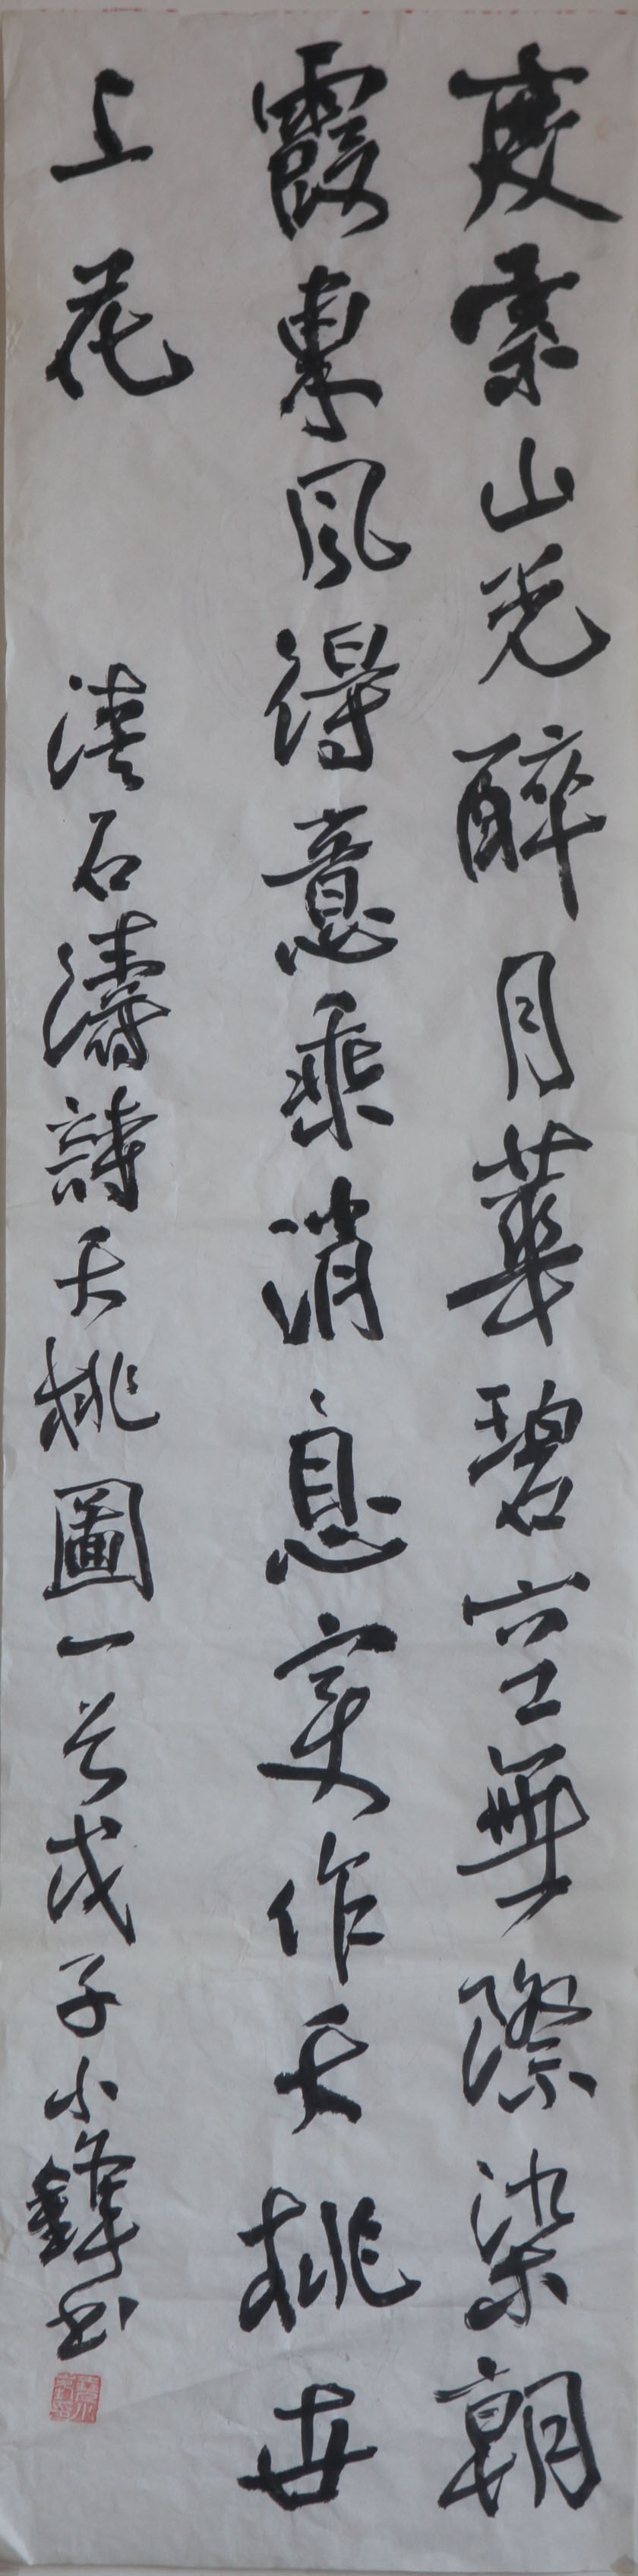 度索山光醉月華碧空無際染朝
霞東風得意乘消息变作夭桃世
上花
清石濤詩夭桃圖一首戊子小鋒书